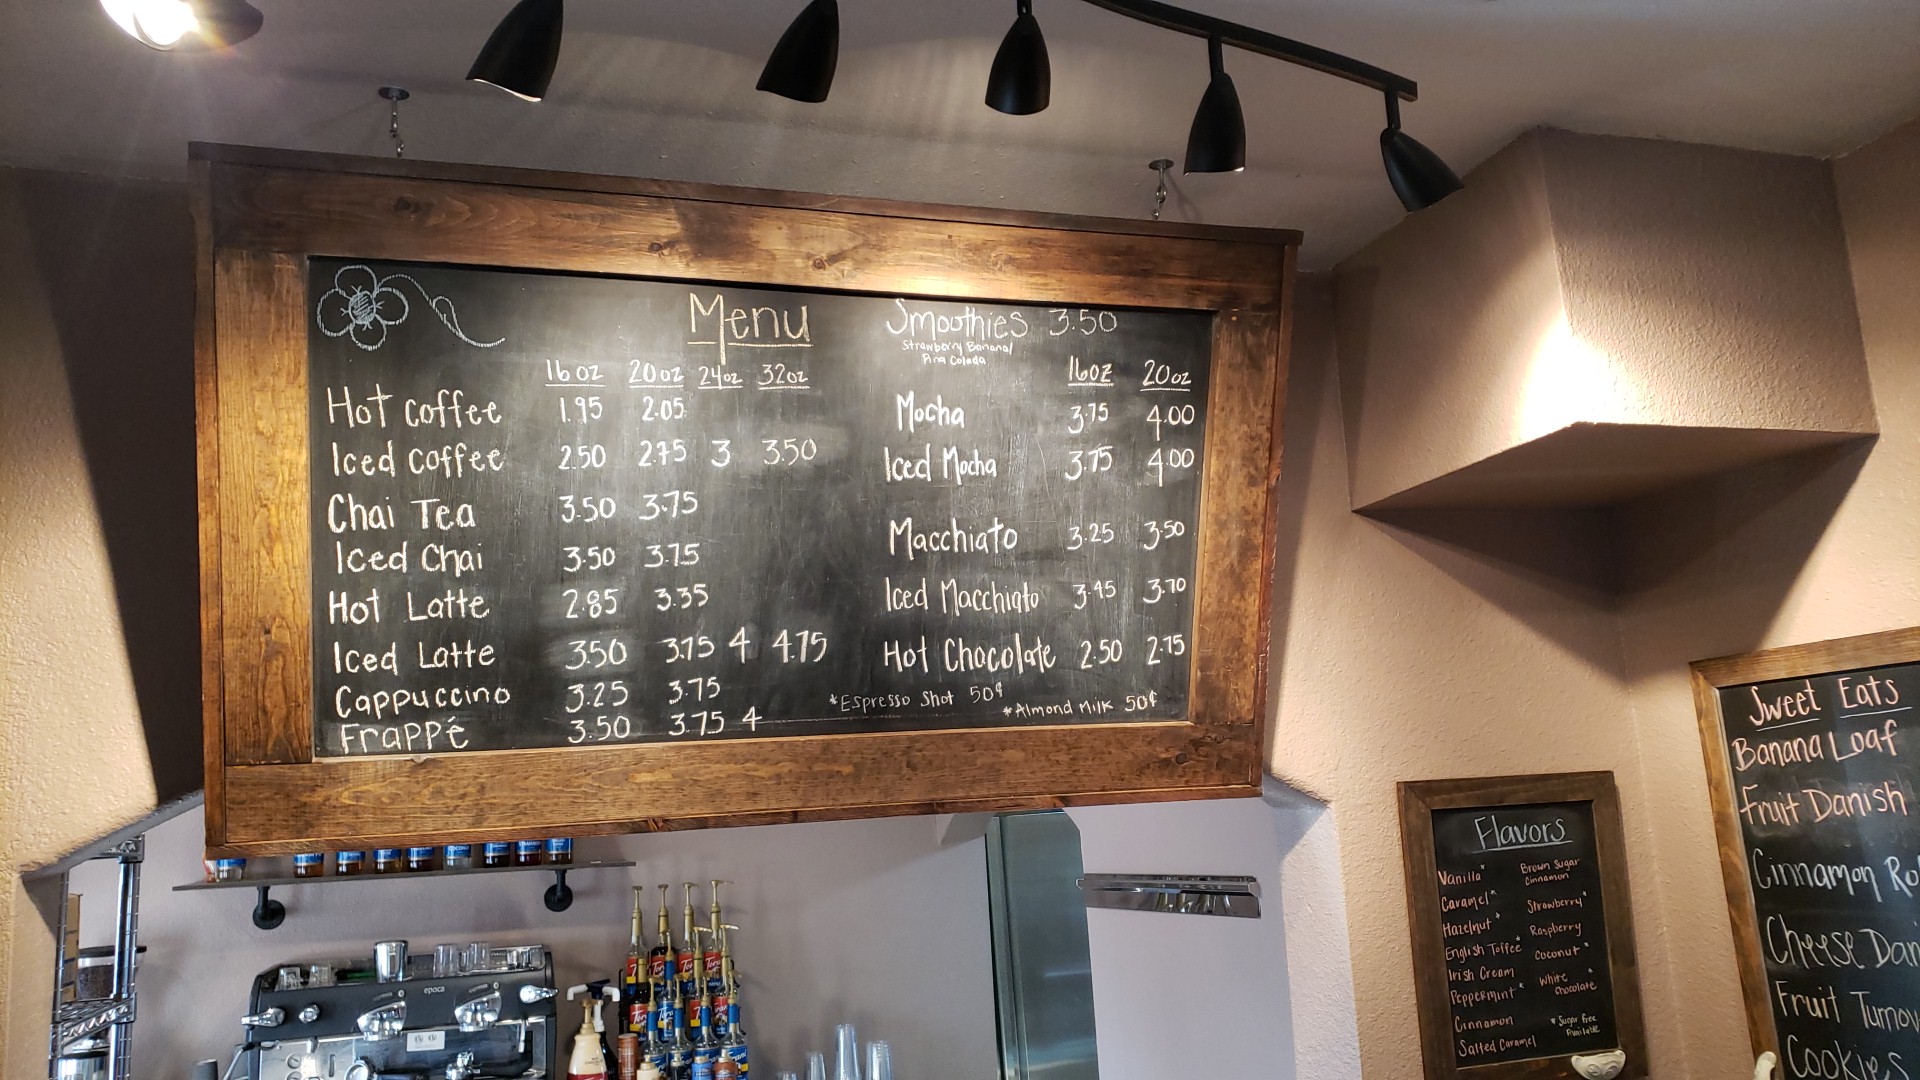 Menu
16oz 20oz 24oz 32oz
Hot coffee 1.95 2.05
Iced coffee 2.50 2.75 3 3.50
Chai Tea 3.50 3.75
Iced Chai 3.50 3.75
Hot Latte 2.85 3.35
Iced Latte 3.50 3.75 4 4.75
Cappuccino 3.25 3.75
Frappé 3.50 3.75 4
Smoothies 3.50
Strawberry Banana/
Pina Colada
16oz 20oz
Mocha 3.75 4.00
Iced Mocha 3.75 4.00
Macchiato 3.25 3.50
Iced Macchiato 3.45 3.70
Hot Chocolate 2.50 2.75
*Espresso Shot 50¢
*Almond Milk 50¢
Flavors
Vanilla*
Caramel*
Hazelnut*
English Toffee*
Irish Cream
Peppermint*
Cinnamon
Salted Caramel
Brown Sugar
Cinnamon
Strawberry*
Raspberry
Coconut*
White
Chocolate*
*Sugar Free
Available
Sweet Eats
Banana Loaf
Fruit Danish
Cinnamon Ro
Cheese Dan
Fruit Turnov
Cookies
epoca